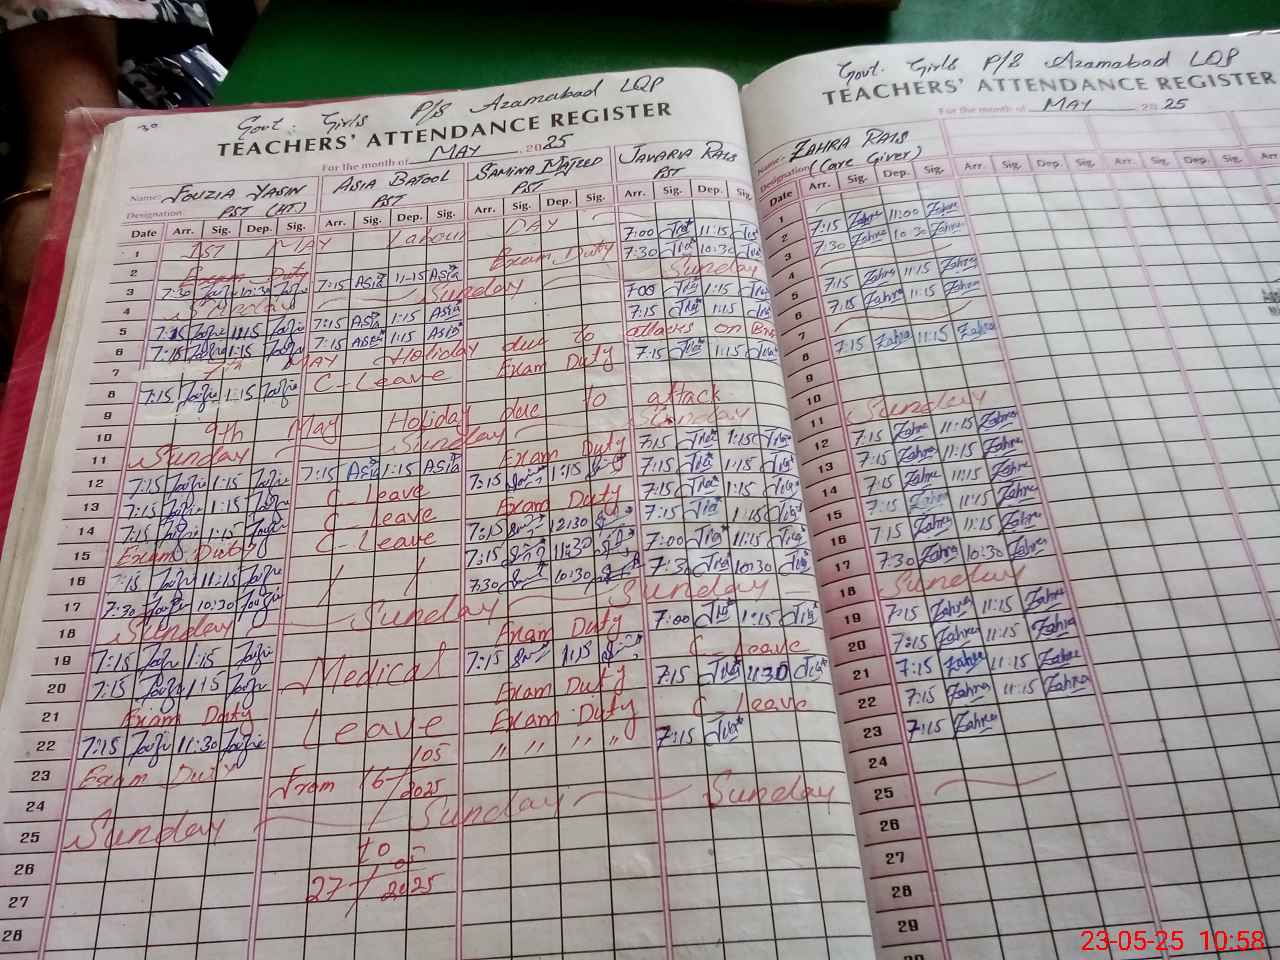 30
Govt: Girls P/S Azamabad LQP
TEACHERS' ATTENDANCE REGISTER
For the month of MAY 2025
Name FOUZIA YASIN ASIA BATOOL SAMINA MAJEED JAVARIA RAIS
Designation PST (HT) PST PST PST
Date Arr. Sig. Dep. Sig. Arr. Sig. Dep. Sig. Arr. Sig. Dep. Sig. Arr. Sig. Dep. Sig.
1 1ST MAY Labour DAY
2 Exam Duty 7:15 Asia 11-15 Asia Exam Duty 7:00 11:15
3 7:30 10:30 7:30 10:30
4 Sunday Sunday Sunday
5 7:15 11:15 7:15 Asia 1:15 Asia 7:00 1:15
6 7:15 1:15 7:15 Asia 1:15 Asia 7:15 1:15
7 7th MAY Holiday due to attacks on
8 7:15 1:15 C-Leave Exam Duty 7:15 1:15
9
10 9th May Holiday due to attack
11 Sunday Sunday Sunday
12 7:15 1:15 7:15 Asia 1:15 Asia Exam Duty 7:15 1:15
13 7:15 1:15 C-Leave 7:15 1:15 7:15 1:15
14 7:15 1:15 C-Leave Exam Duty 7:15 1:15
15 Exam Duty C-Leave 7:15 12:30 7:15 1:15
16 7:15 11:15 7:15 11:30 7:00 11:15
17 7:30 10:30 7:30 10:30 7:30 10:30
18 Sunday Sunday Sunday
19 7:15 1:15 Exam Duty 7:00 1:15
20 7:15 1:15 Medical 7:15 1:15 C-Leave
21 Exam Duty Exam Duty 7:15 11:30
22 7:15 11:30 Leave Exam Duty C-Leave
23 Exam Duty From 16/05/2025 " " " " 7:15
24
25 Sunday Sunday Sunday
26 to
27 27/05/2025
28
Govt. Girls P/S Azamabad LQP
TEACHERS' ATTENDANCE REGISTER
For the month of MAY 2025
Name- ZAHRA RAIS
Designation (Care Giver)
Date Arr. Sig. Dep. Sig. Arr. Sig. Dep. Sig. Arr. Sig. Dep.
1
2 7:15 Zahra 11:00 Zahra
3 7:30 Zahra 10:30 Zahra
4
5 7:15 Zahra 11:15 Zahra
6 7:15 Zahra 11:15 Zahra
7
8 7:15 Zahra 11:15 Zahra
9
10
11 Sunday
12 7:15 Zahra 11:15 Zahra
13 7:15 Zahra 11:15 Zahra
14 7:15 Zahra 11:15 Zahra
15 7:15 Zahra 11:15 Zahra
16 7:15 Zahra 11:15 Zahra
17 7:30 Zahra 10:30 Zahra
18 Sunday
19 7:15 Zahra 11:15 Zahra
20 7:15 Zahra 11:15 Zahra
21 7:15 Zahra 11:15 Zahra
22 7:15 Zahra 11:15 Zahra
23 7:15 Zahra
24
25
26
27
28
29
23-05-25 10:58